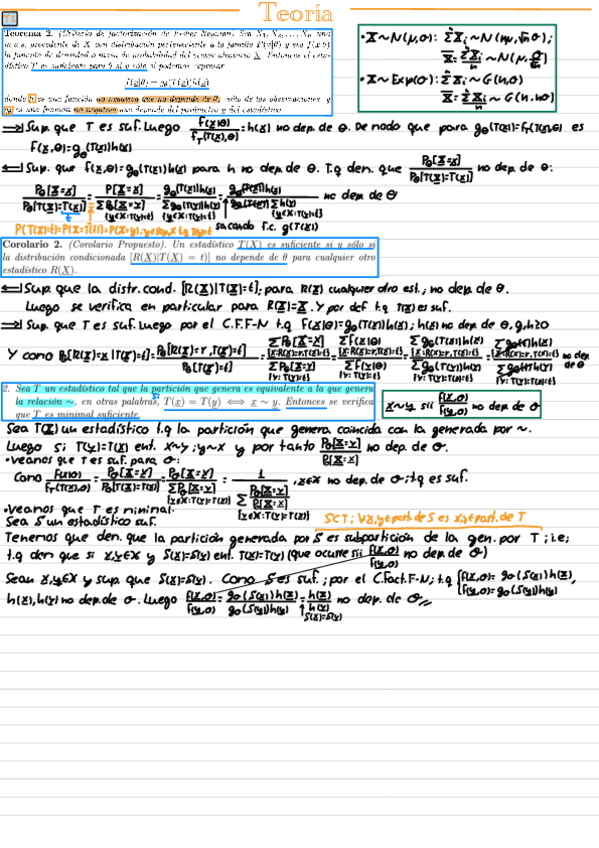 T1
Teoría
Teorema 2. (Criterio de factorización de Fisher-Neyman). Sea X₁, X₂, ..., Xₙ una
m.a.s. procedente de X con distribución perteneciente a la familia P(x|θ) y sea f(x|θ)
la función de densidad o masa de probabilidad del vector aleatorio X. Entonces el esta-
dístico T es suficiente para θ si y sólo si podemos expresar
f(x|θ) = g_θ(T(x))h(x)
donde h es una función no negativa que no depende de θ, sólo de las observaciones y
g_θ es una función no negativa que depende del parámetro y del estadístico
• X~N(μ,σ): Σ Xᵢ ~ N(nμ, √n σ);
X̄ = Σ Xᵢ/n ~ N(μ, σ/√n)
• X~Exp(σ): Σ Xᵢ ~ G(n,σ)
X̄ = Σ Xᵢ/n ~ G(n,nσ)
⟹ Sup. que T es suf. Luego f(x|θ)/f_T(T(x),θ) = h(x) no dep. de θ. De modo que para g_θ(T(x)) = f_T(T(x),θ) es
f(x,θ)=g_θ(T(x))h(x)
⟸ Sup. que f(x,θ)=g_θ(T(x))h(x) para h no dep. de θ. T.q den. que P_θ[X=x]/P_θ[T(X)=T(x)] no dep. de θ:
P_θ[X=x]/P_θ[T(X)=T(x)] = P[X=x]/Σ P_θ[X=y] = g_θ(T(x))h(x)/Σ g_θ(T(y))h(y) = g_θ(T(x))h(x)/g_θ(T(x)) Σ h(y) no dep de θ
{y∈X:T(y)=t} {y∈X:T(y)=t} {y∈X:T(y)=t}
sacando f.c. g(T(x))
Corolario 2. (Corolario Propuesto). Un estadístico T(X) es suficiente si y sólo si
la distribución condicionada [R(X)|T(X) = t)] no depende de θ para cualquier otro
estadístico R(X).
⟸ Sup. que la distr. cond. [R(X)|T(X)=t]; para R(X) cualquier otro est.; no dep. de θ.
Luego se verifica en particular para R(X)=X. Y por def t.q T(X) es suf.
⟹ Sup. que T es suf. Luego por el C.F.F-N t.q f(x|θ)=g_θ(T(x))h(x); h(x) no dep. de θ, g,h≥0
Y como P_θ[R(X)=r|T(X)=t] = P_θ[R(X)=r,T(X)=t]/P_θ[T(X)=t] = Σ P_θ[X=x]/Σ P_θ[X=y] = Σ f(x|θ)/Σ f(y|θ) = Σ g_θ(T(x))h(x)/Σ g_θ(T(y))h(y) = no dep de θ
2. Sea T un estadístico tal que la partición que genera es equivalente a la que genera
la relación ∼, en otras palabras, T(x) = T(y) ⟺ x ∼ y. Entonces se verifica
que T es minimal suficiente.
x~y sii f(x,θ)/f(y,θ) no dep de θ
Sea T(X) un estadístico t.q la partición que genera coincida con la generada por ~.
Luego si T(y)=T(x) ent. x~y; y~x y por tanto P_θ[X=y]/P_θ[X=x] no dep. de θ.
• Veamos que T es suf. para θ:
Como f(x,θ)/f_T(T(x),θ) = P_θ[X=x]/P_θ[T(X)=T(x)] = P_θ[X=x]/Σ P_θ[X=y] = 1/Σ P_θ[X=y]/P_θ[X=x], x∈X no dep. de θ; t.q es suf.
{y∈X:T(y)=T(x)} {y∈X:T(y)=T(x)}
• Veamos que T es minimal.
Sea S un estadístico suf.
S⊂T; ∀x,y∈part. de S es x,y∈part. de T
Tenemos que den. que la partición generada por S es subpartición de la gen. por T; i.e;
t.q den que si x,y∈X y S(x)=S(y) ent. T(x)=T(y) (que ocurre sii f(x,θ)/f(y,θ) no dep. de θ)
Sean x,y∈X y sup. que S(x)=S(y). Como S es suf.; por el C.Fact.F-N; t.q {f(x,θ)=g_θ(S(x))h(x), f(y,θ)=g_θ(S(y))h(y)
h(x),h(y) no dep. de θ. Luego f(x,θ)/f(y,θ) = g_θ(S(x))h(x)/g_θ(S(y))h(y) = h(x)/h(y) no dep. de θ
S(x)=S(y)